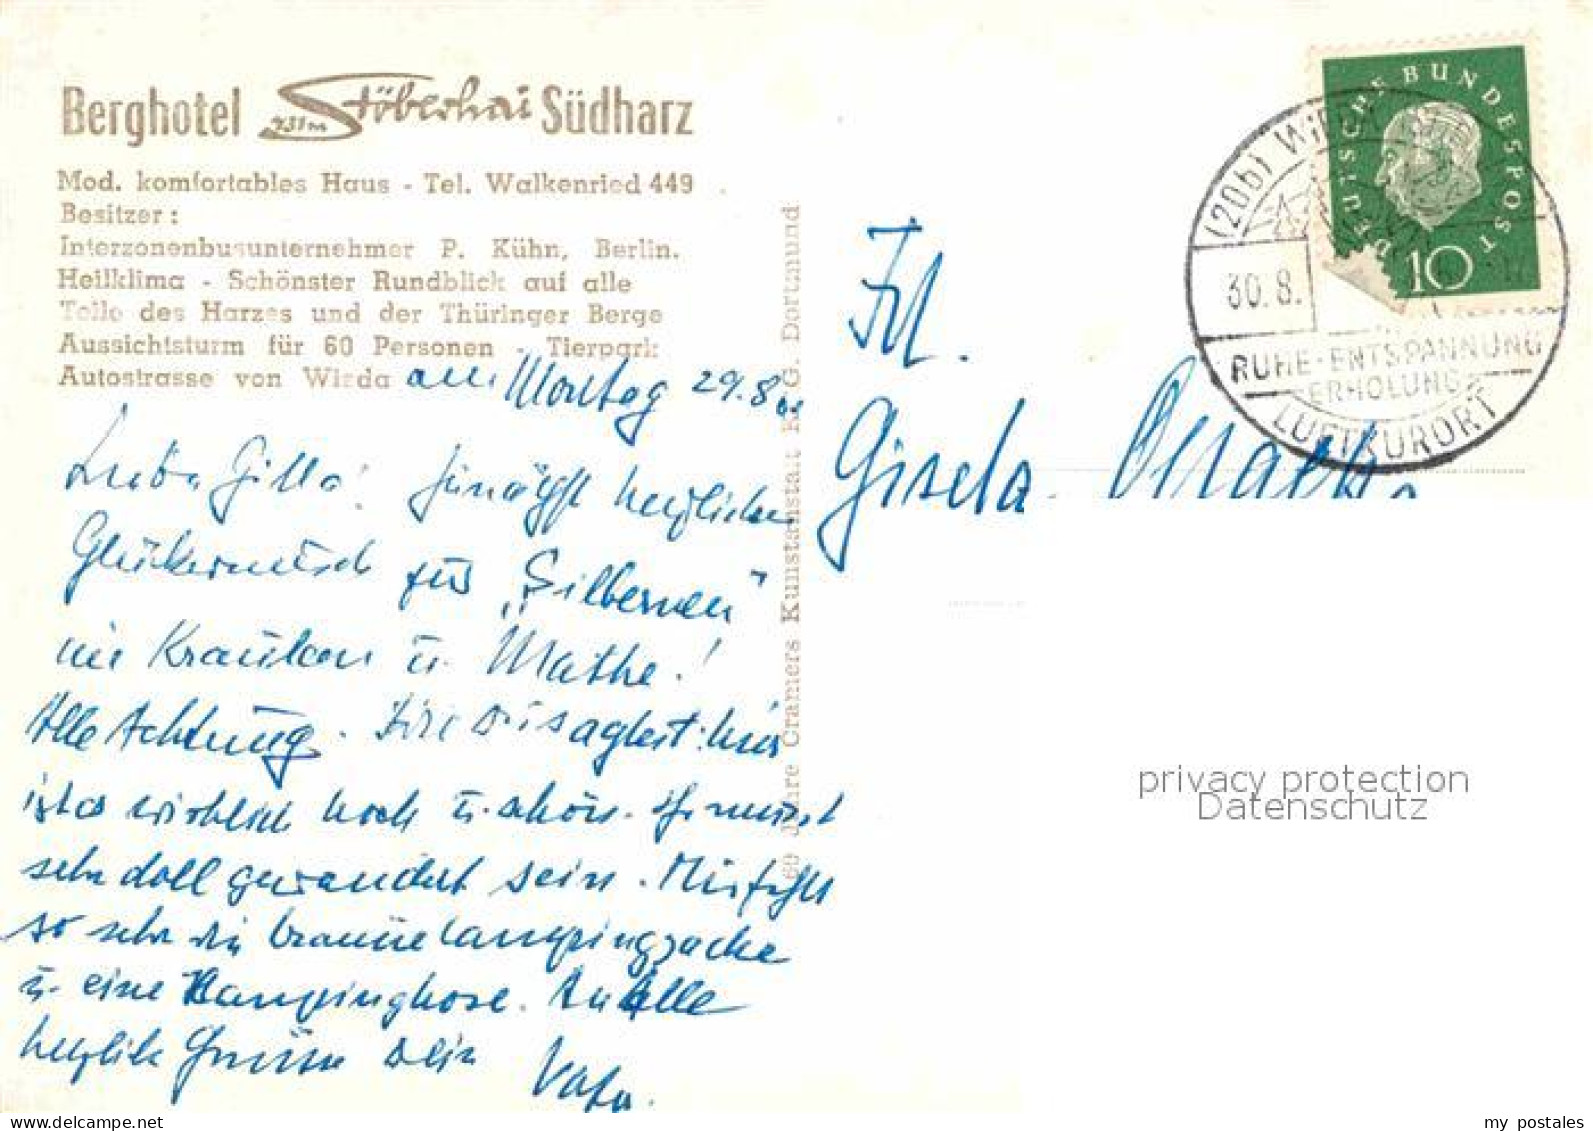 Berghotel Stöberhai Südharz
731m
Mod. komfortables Haus - Tel. Walkenried 449
Besitzer:
Interzonenbusunternehmer P. Kühn, Berlin.
Heilklima - Schönster Rundblick auf alle
Teile des Harzes und der Thüringer Berge
Aussichtsturm für 60 Personen - Tierpark
Autostrasse von Wieda
am Montag 29.8.
Liebe Gilla! zunächst herzlichen
Glückwunsch zur „Silbernen"
in u. Mathe!
Alle Achtung. Wie Du sagtest: hier
ist es wirklich hoch u. schön. Ihr müsst
sehr doll gewandert sein. Mir fehlt
so sehr die braune Campingjacke
u. eine Campinghose. An alle
herzliche Grüsse Dein Vater.
60 Jahre Cramers Kunstanstalt K.G. Dortmund
Frl.
Gisela
DEUTSCHE BUNDESPOST
10
(20b) Wi
30.8.
RUHE-ENTSPANNUNG
ERHOLUNG
LUFTKURORT
privacy protection
Datenschutz
my postales